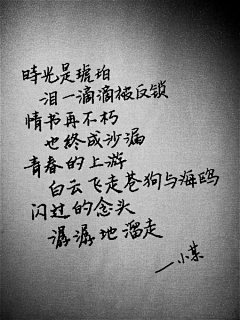 時光是琥珀
泪一滴滴被反锁
情书再不朽
也终成沙漏
青春的上游
白云飞走苍狗与海鸥
闪过的念头
潺潺地溜走
—小某